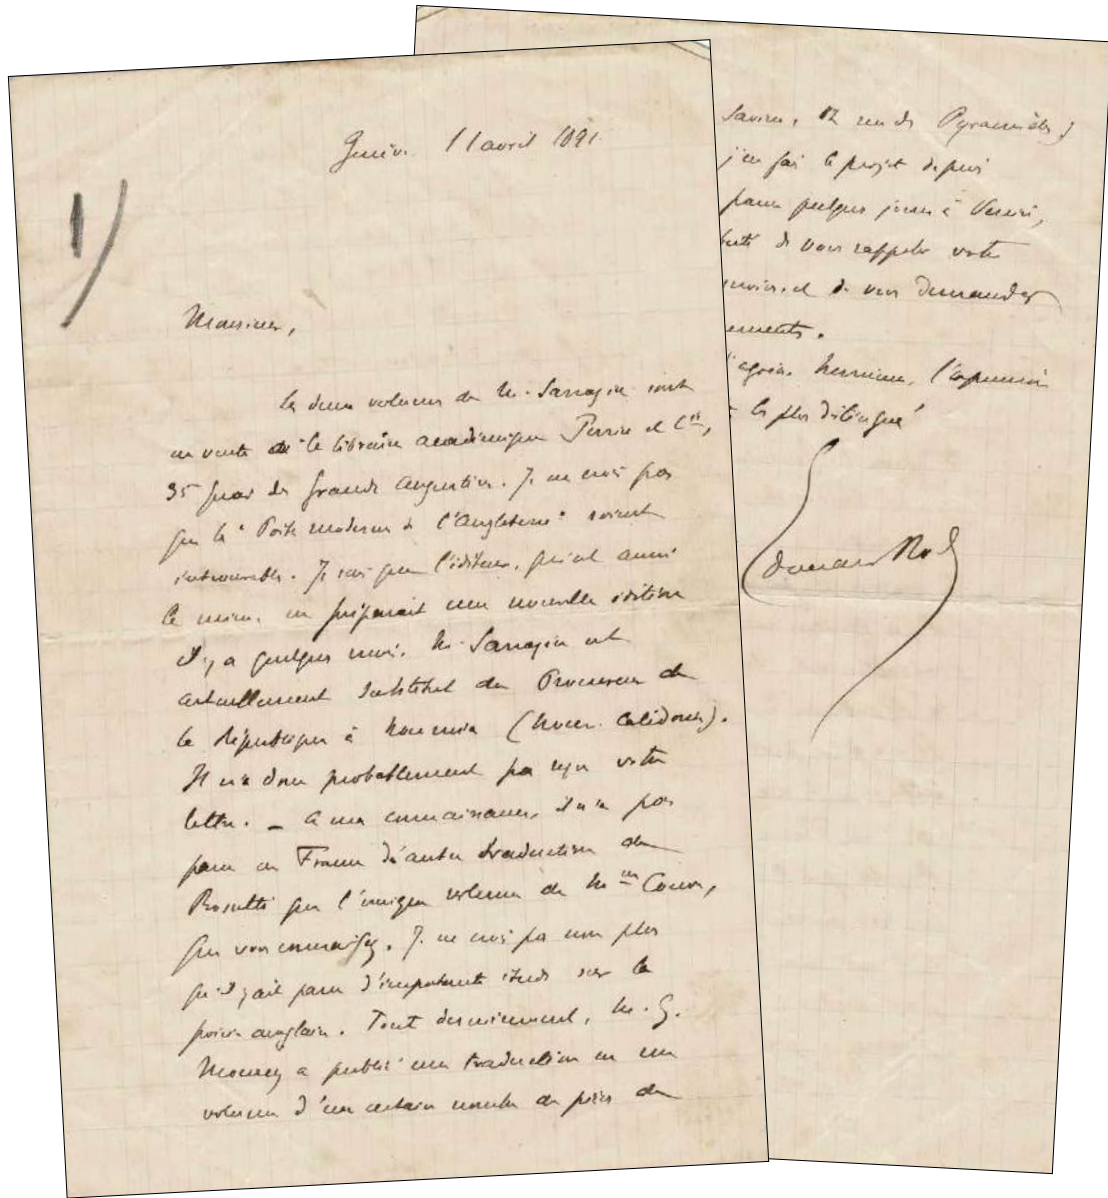 1)
Genève 11 avril 1891.
Monsieur,
Les deux volumes de M. Sarrazin sont
en vente à la librairie académique Perrin et Cie,
35 quai des Grands Augustins. Je ne crois pas
que les "Poètes modernes de l'Angleterre" soient
introuvables. Je sais que l'éditeur, qui est aussi
le mien, en préparait une nouvelle édition
il y a quelques mois. M. Sarrazin est
actuellement substitut du Procureur de
la République à Nouméa (Nouv. Calédonie).
Il n'a donc probablement pas reçu votre
lettre. – A ma connaissance, il n'a pas
paru en France d'autre traduction de
Rossetti que l'unique volume de Mme Couve,
que vous connaissez. Je ne crois pas non plus
qu'il y ait paru d'importante étude sur la
poésie anglaise. Tout dernièrement, M. G.
Mourey a publié une traduction en un
volume d'un certain nombre de pièces de
Savine, 12 rue des Pyramides)
j'en fais le projet depuis
passer quelques jours à Venise,
de vous rappeler votre
et de vous demander
ements.
agréer, Monsieur, l'expression
les plus distingués
Edouard Rod